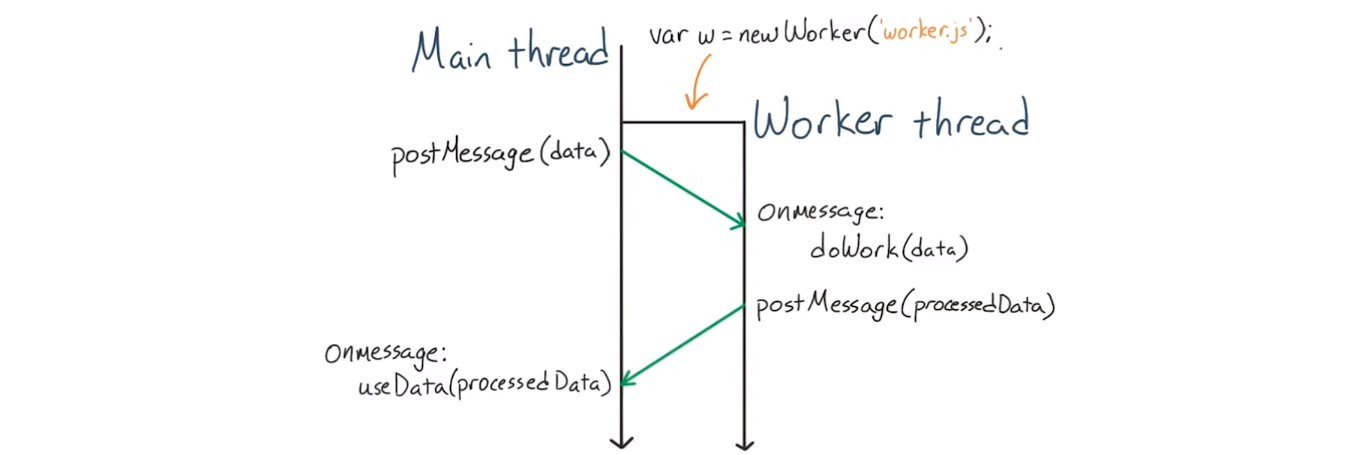 Main thread
var w = new Worker('worker.js');
Worker thread
postMessage(data)
Onmessage:
doWork(data)
postMessage(processedData)
Onmessage:
useData(processedData)